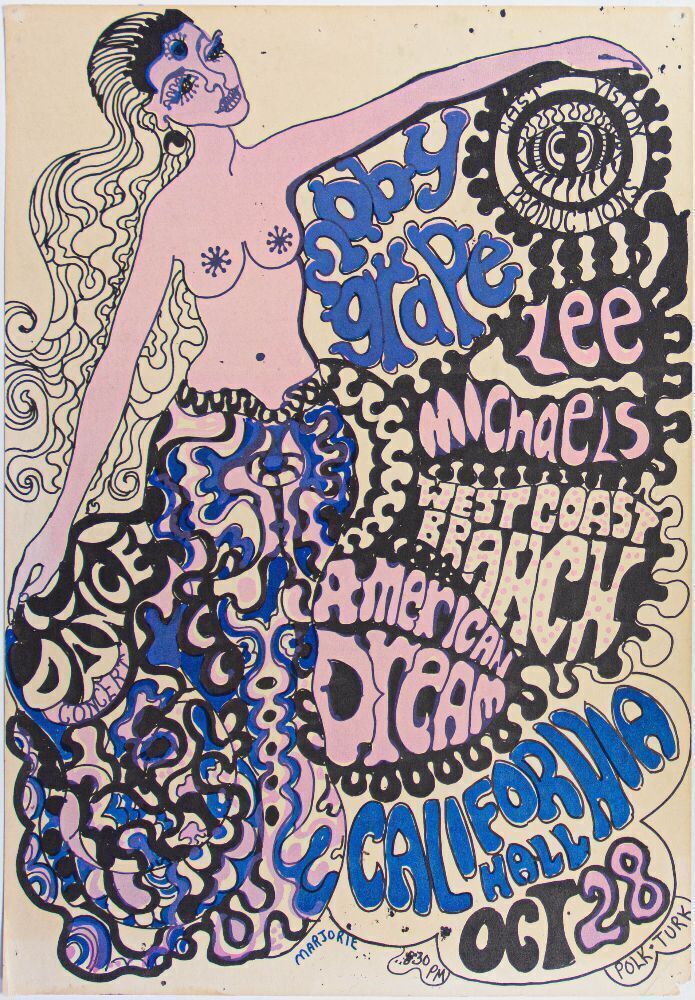 EAST VISION
PRODUCTIONS
Moby
grape
Lee
Michaels
WEST COAST
BRANCH
American
Dream
DANCE
CONCERT
CALIFORNIA
HALL
OCT 28
MARJORIE
8:30
PM
POLK-TURK